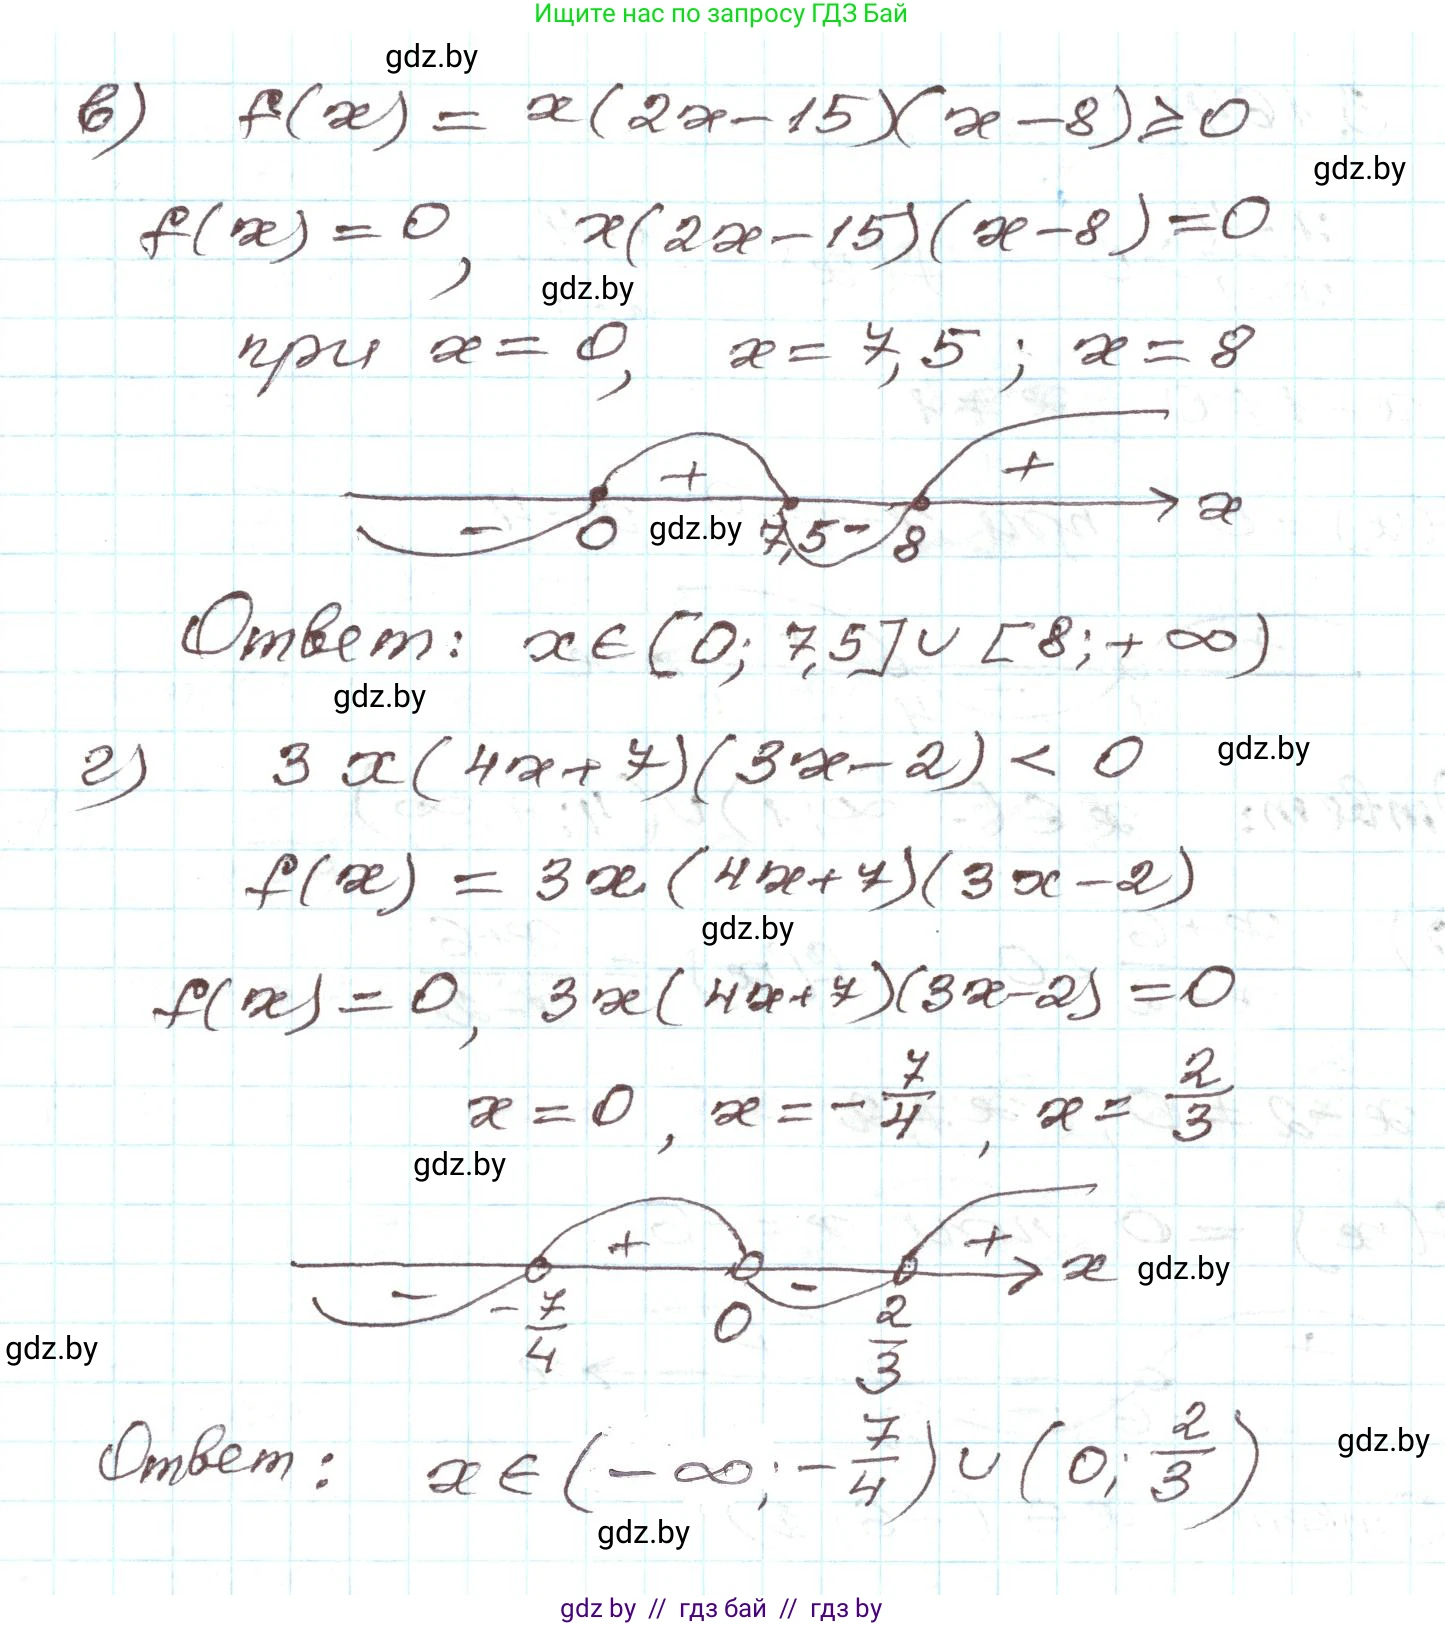 Ищите нас по запросу ГДЗ Бай
gdz.by
в) f(x) = x(2x-15)(x-8)≥0
gdz.by
f(x)=0, x(2x-15)(x-8)=0
gdz.by
при x=0, x=7,5; x=8
+ +
x
- 0 gdz.by 7,5 - 8
Ответ: x∈[0; 7,5]∪[8;+∞)
gdz.by
г) 3x(4x+7)(3x-2)<0 gdz.by
f(x) = 3x(4x+7)(3x-2)
gdz.by
f(x)=0, 3x(4x+7)(3x-2)=0
x=0, x=-7/4, x=2/3
gdz.by
+ +
x gdz.by
- -7/4 0 - 2/3
gdz.by
Ответ: x∈(-∞;-7/4)∪(0;2/3) gdz.by
gdz.by
gdz by // гдз бай // гдз by